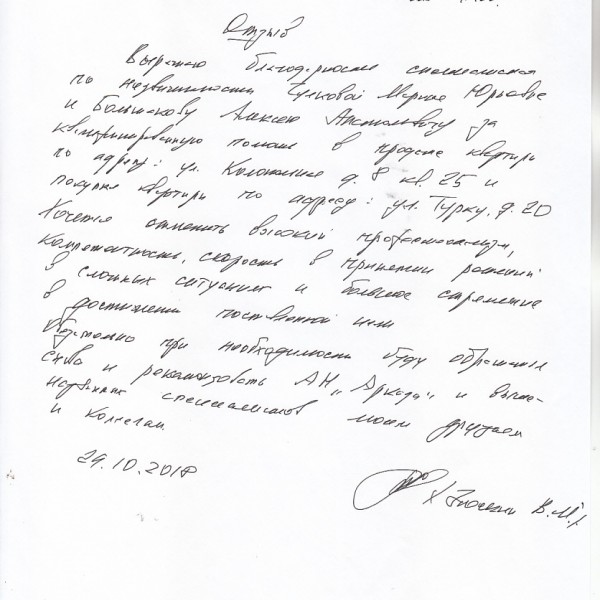 Отзыв
Выражаю благодарность специалистам
по недвижимости Чулковой Марине Юрьевне
и Большакову Алексею Анатольевичу за
квалифицированную помощь в продаже квартиры
по адресу: ул. д. 8 кв. 25 и
покупке квартиры по адресу: ул. Турку, д. 20
Хочется отметить высокий профессионализм,
компетентность, скорость в принятии решений
в сложных ситуациях и большое стремление
в достижении поставленной цели
при необходимости буду обращаться
снова и рекомендовать АН „Аркада" и выше-
специалистов моим друзьям
и коллегам
29.10.2018
В.М.